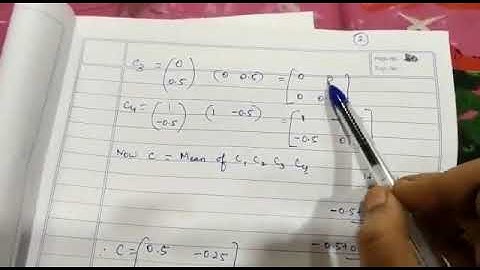 2
Page No. 20
C3 = (0 0.5) (0 0.5) = [0 0
0 0
C4 = (1 -0.5) (1 -0.5) = [1
-0.5 0
Now C = Mean of C1 C2 C3 C4
-0.5+
∴ C = [0.5 -0.25]
-0.5+0